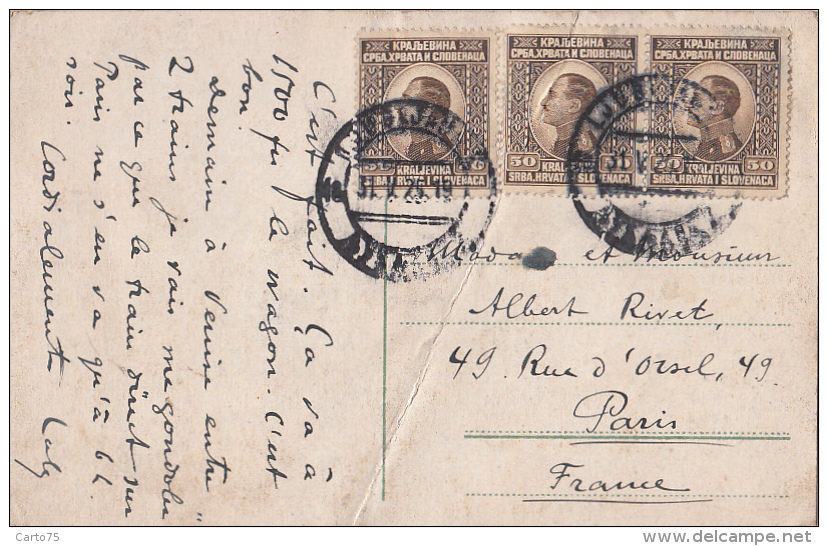 C'est fait. Ça va à
1500 fr le wagon. C'est
bon.
Demain à Venise entre
2 trains je vais me gondoler
parce que le train direct sur
Paris ne s'en va qu'à 6 h.
soir. Cordialement
КРАЉЕВИНА
СРБА,ХРВАТА И СЛОВЕНАЦА
50 50
KRALJEVINA
SRBA,HRVATA I SLOVENACA
КРАЉЕВИНА
СРБА,ХРВАТА И СЛОВЕНАЦА
50 50
KRALJEVINA
SRBA,HRVATA I SLOVENACA
КРАЉЕВИНА
СРБА,ХРВАТА И СЛОВЕНАЦА
50 50
KRALJEVINA
SRBA,HRVATA I SLOVENACA
et Monsieur
Albert Rivet,
49. Rue d'Orsel, 49.
Paris
France
Carto75
www.delcampe.net